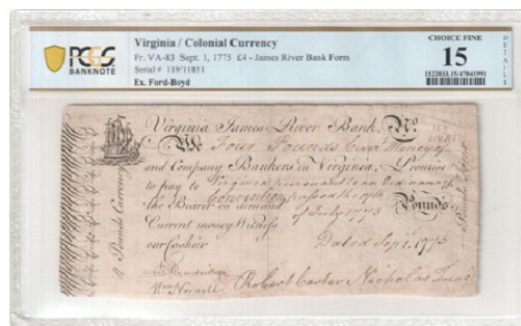 PCGS
BANKNOTE
Virginia / Colonial Currency
Fr. VA-83 Sept. 1, 1775 £4 - James River Bank Form
Serial # 119/11851
Ex. Ford-Boyd
CHOICE FINE
15
DETAILS
Virginia James River Bank, No
Four Pounds Curr Money of
and Company Bankers in Virginia, Promise
to pay to Virginia pursuant to an Ordnance of
the Bearer on demand Convention passed the 17th Pounds
of July 1775
Current money Witness
our Cashier Dated Sept 1. 1775
Wm Norvell Robert Carter Nicholas
4 Pounds Currency